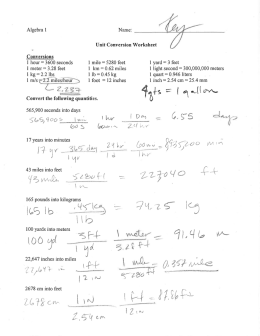 Algebra I Name: Key
Unit Conversion Worksheet
Conversions
1 hour = 3600 seconds 1 mile = 5280 feet 1 yard = 3 feet
1 meter = 3.28 feet 1 km = 0.62 miles 1 light second = 300,000,000 meters
1 kg = 2.2 lbs 1 lb = 0.45 kg 1 quart = 0.946 liters
1 m/s = 2.2 miles/hour 1 foot = 12 inches 1 inch = 2.54 cm = 25.4 mm
2.237 4 qts = 1 gallon
Convert the following quantities.
565,900 seconds into days
565,900 s 1 min 1 hr 1 day = 6.55 days
60 s 60 min 24 hr
17 years into minutes
17 yr 365 day 24 hr 60 min = min
1 yr 1 day 1 hr
43 miles into feet
43 miles 5280 ft = 227040 ft
1 m
165 pounds into kilograms
165 lb .45 kg = 74.25 kg
1 lb
100 yards into meters
100 yd 3 ft 1 meter = 91.46 m
1 yd 3.28 ft
22,647 inches into miles
22,647 in 1 ft 1 mile = 0.358 miles
12 in 5280 ft
2678 cm into feet
2678 cm 1 in 1 ft = 87.86 ft
2.54 cm 12 in